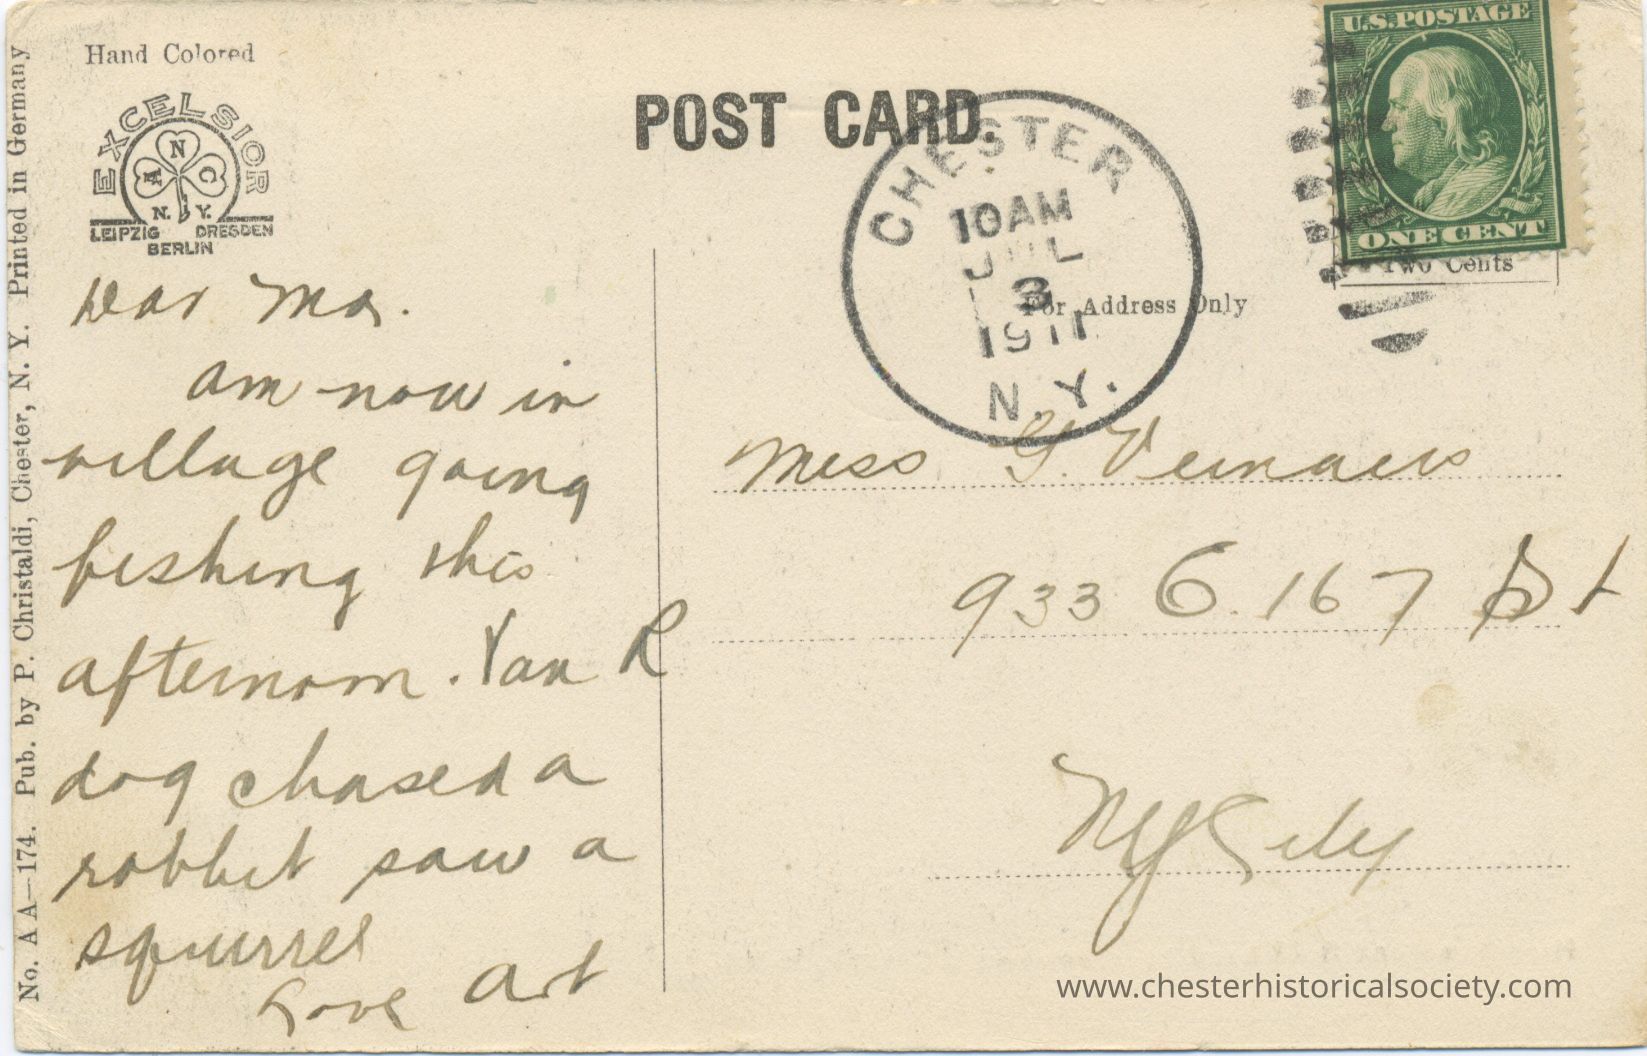 Hand Colored
EXCELSIOR
A N C
N. Y.
LEIPZIG DRESDEN
BERLIN
POST CARD.
CHESTER
10AM
JUL
3
1911
N. Y.
U.S. POSTAGE
ONE CENT
Two Cents
For Address Only
Dear Ma.
am now in
village going
fishing this
afternoon. Van R
dog chased a
rabbit saw a
squirrel
Love Art
Miss G.
933 E. 167 St
NY City
No. A A—174. Pub. by P. Christaldi, Chester, N. Y. Printed in Germany
www.chesterhistoricalsociety.com